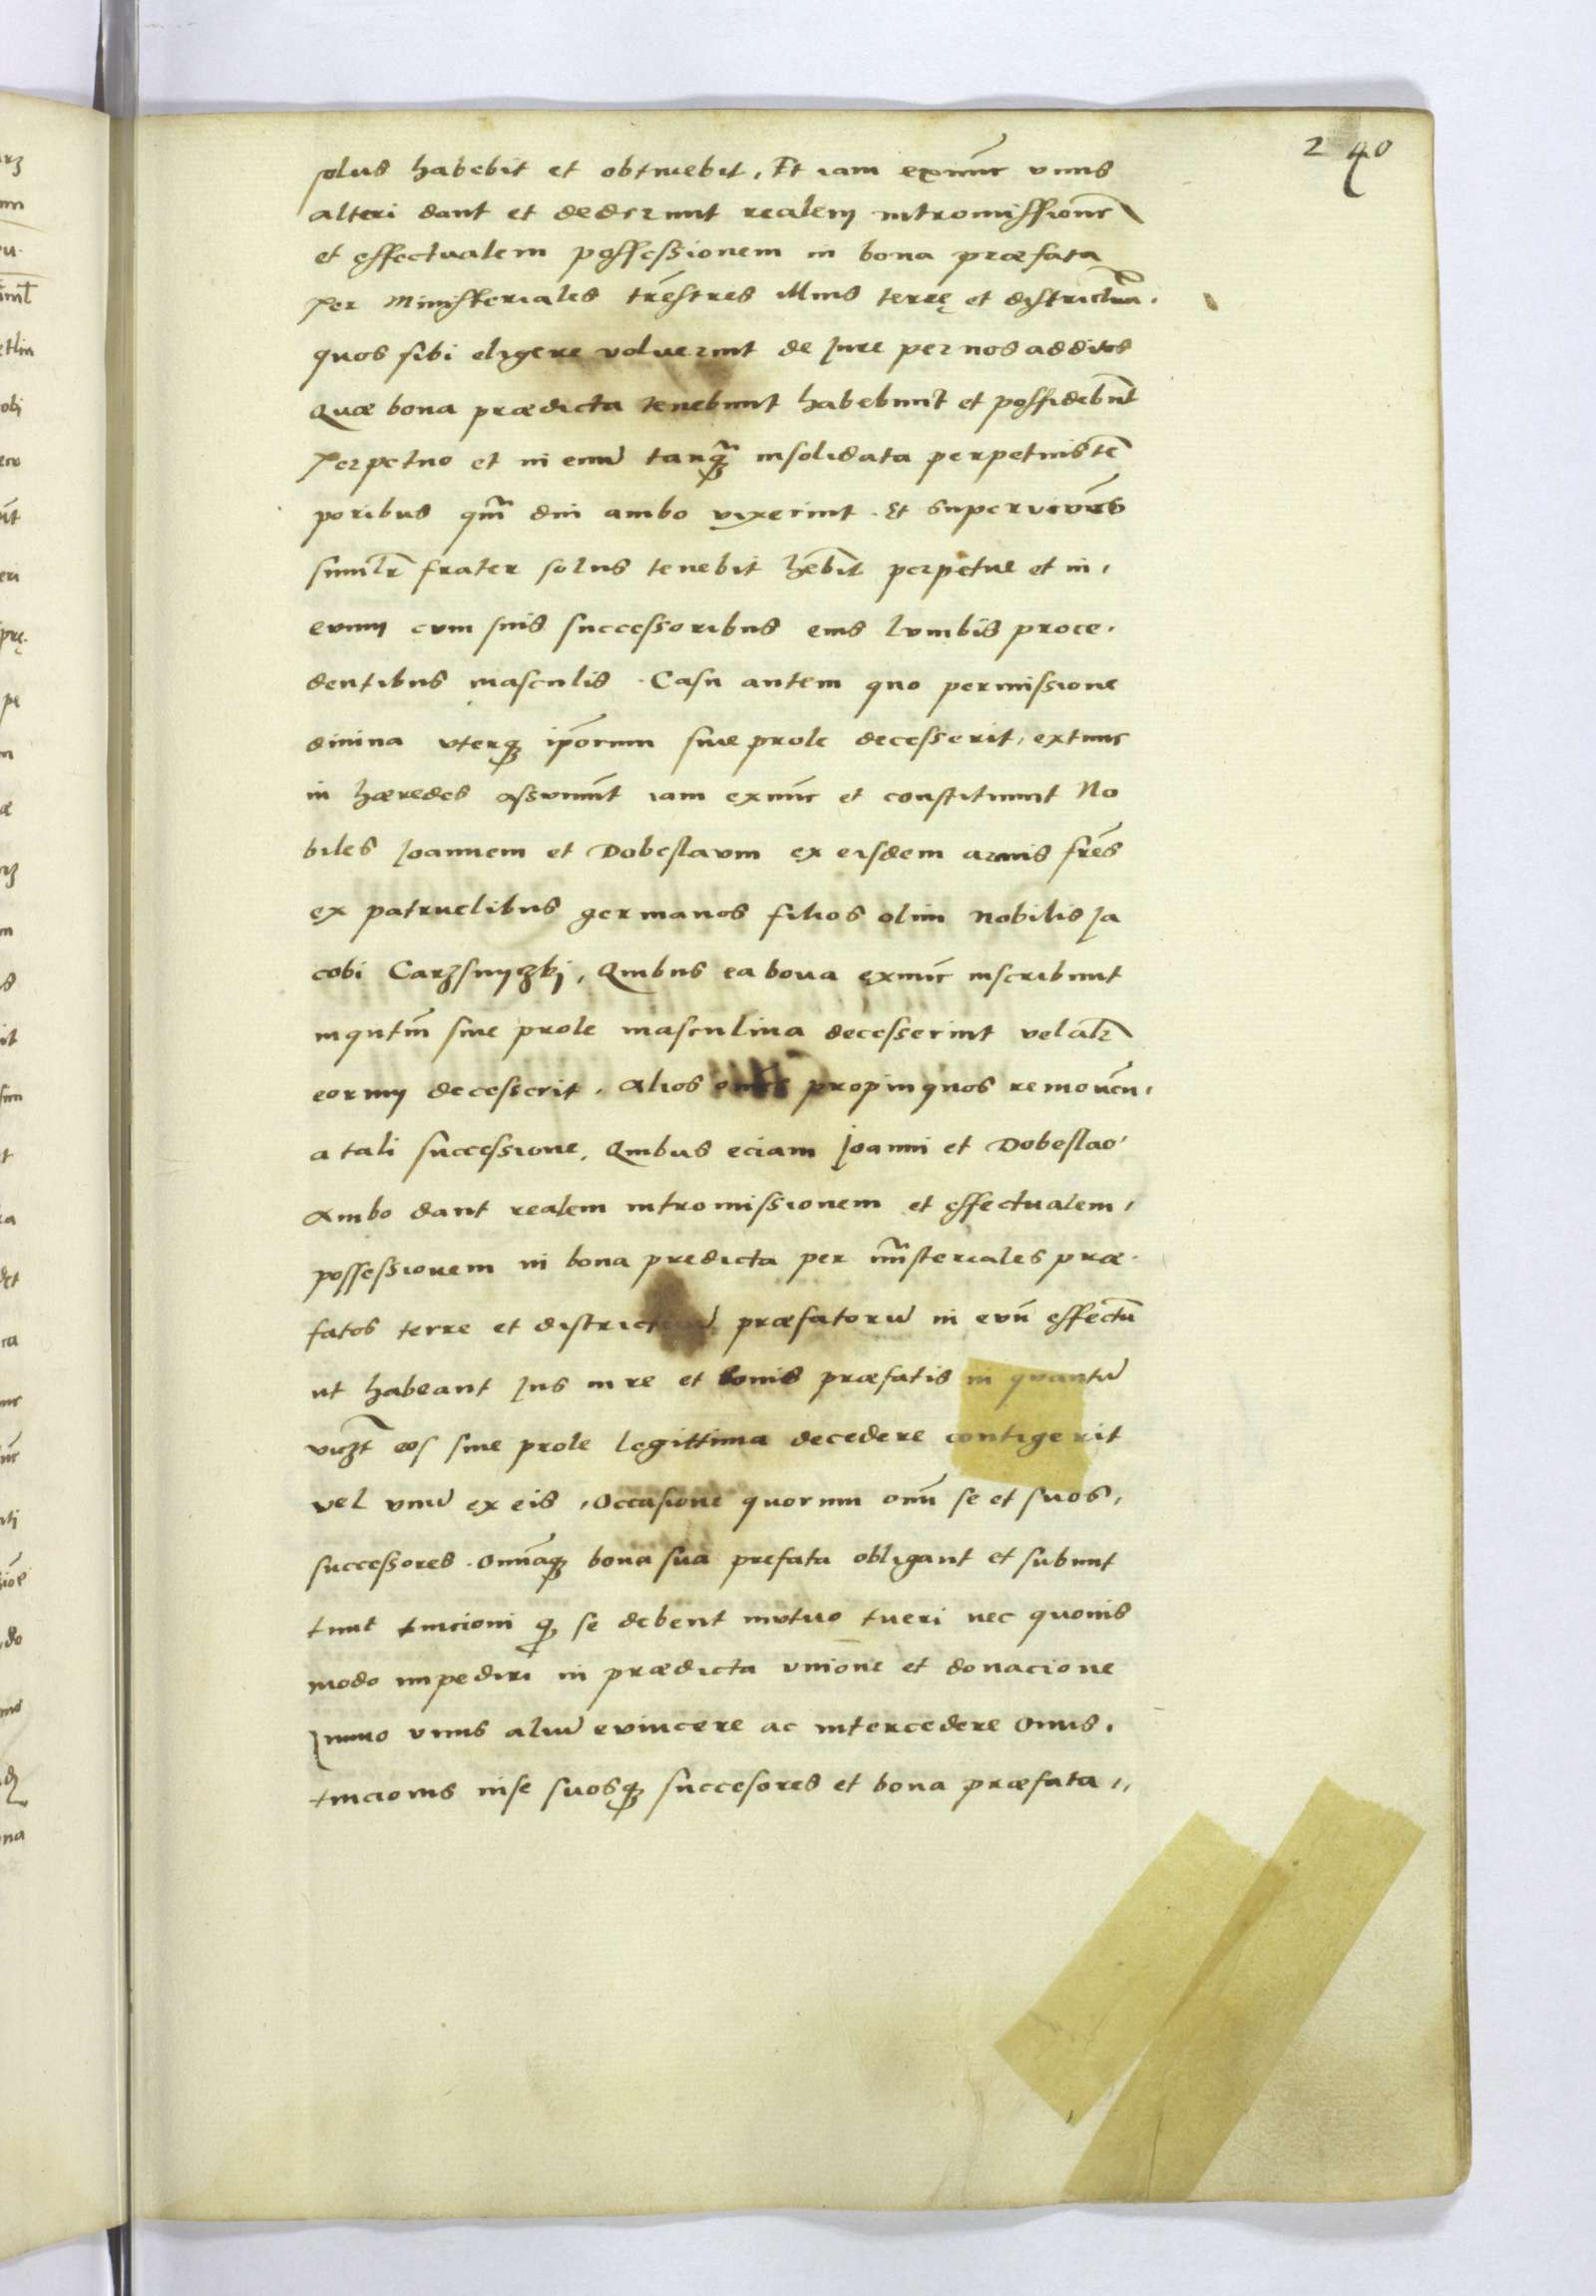 240
solus habebit et obtinebit, Et iam exnūc vnus
alteri dant et dederunt realem intromissionē
et effectualem possessionem in bona præfata
Per Ministeriales trēstres illius terrę et districtuū.
quos sibi eligere voluerint de Jure per nos additos
Quæ bona prædicta tenebunt habebunt et possidebūt
Perpetuo et in euū tanq̄ insolidata perpetuis tē
poribus qm̄ diu ambo vixerint. Et superviuēs
similr̄ frater solus tenebit hēbit perpetue et in,
evum cvm suis successoribus eius lvmbis proce,
dentibus masculis. Casu autem quo permissione
diuina vterq₃ ip̄orum siue prole decesserit, extunc
in hæredes assvmūt iam exnūc et constituunt No
biles Joannem et Dobeslavm ex eisdem armis frēs
ex patruelibus germanos filios olim Nobilis Ja
cobi Carzsnyzkj, Quibus ea bona exnūc inscribunt
inqntm̄ sine prole masculina decesserint vel altr̄
eorum decesserit. Alios omēs propinquos remouen,
a tali successione, Quibus eciam Joanni et Dobeslao,
Ambo dant realem intromissionem et effectualem,
possessionem in bona predicta per mīsteriales præ.
fatos terre et districtuū præfatorū in evū effectū
ut habeant Jus in re et bonis præfatis in quantū
viꝫt eos sine prole legittima decedere contigerit
vel vnū ex eis, Occasione quorum om̄ se et suos,
successores. Omniaq₃ bona sua prefata obligant et submit
tunt tuicioni q₃ se debent mvtuo tueri nec quouis
modo impediri in prædicta vnione et donacione
Jmmo vnus aliū evincere ac intercedere Onus.
tuicionis in se suosq₃ succesores et bona præfata,,